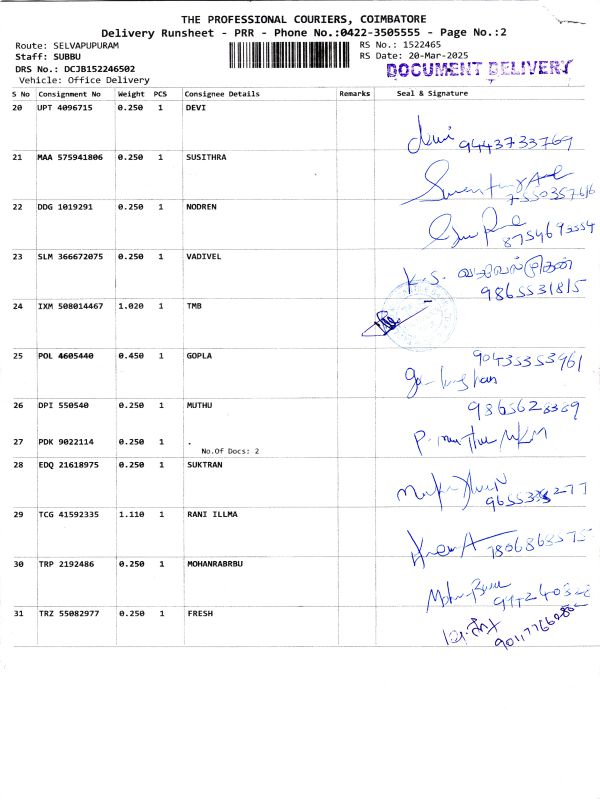 THE PROFESSIONAL COURIERS, COIMBATORE
Delivery Runsheet - PRR - Phone No.:0422-3505555 - Page No.:2
Route: SELVAPUPURAM
RS No.: 1522465
Staff: SUBBU
RS Date: 20-Mar-2025
DRS No.: DCJB152246502
DOCUMENT DELIVERY
Vehicle: Office Delivery
S No Consignment No Weight PCS Consignee Details Remarks Seal & Signature
20 UPT 4096715 0.250 1 DEVI
9443733769
21 MAA 575941806 0.250 1 SUSITHRA
22 DDG 1019291 0.250 1 NODREN
23 SLM 366672075 0.250 1 VADIVEL
K.S.
9865531815
24 IXM 508014467 1.020 1 TMB
25 POL 4605440 0.450 1 GOPLA
26 DPI 550540 0.250 1 MUTHU
27 PDK 9022114 0.250 1 .
No.Of Docs: 2
28 EDQ 21618975 0.250 1 SUKTRAN
29 TCG 41592335 1.110 1 RANI ILLMA
30 TRP 2192486 0.250 1 MOHANRABRBU
31 TRZ 55082977 0.250 1 FRESH